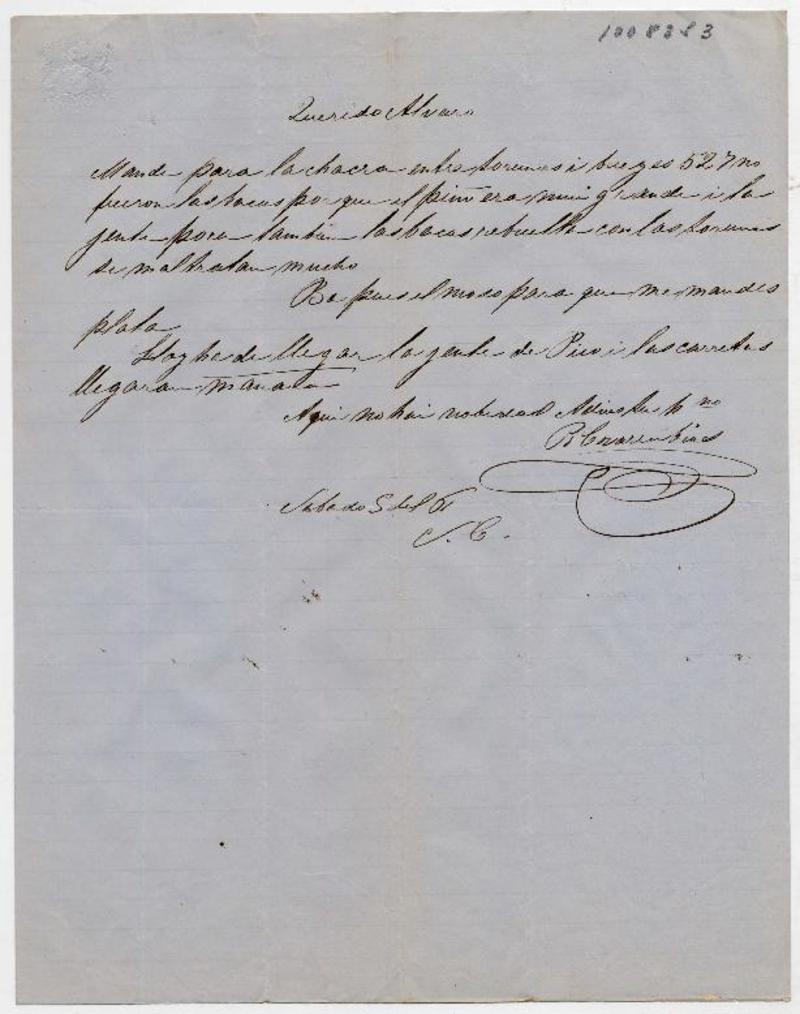 1008283
Querido Alvaro
Mande para la chacra entre torunos i bueyes 527 no
fueron las bacas por que el piñ era mui grande i la
jente poca tambien las bacas rebueltas con los torunos
se maltratan mucho
Ba pues el moso para que me mandes
plata
Hoy ha de llegar la jente de Pico i las carretas
llegaran mañana
Aqui no hai nobedad Adios tu hno
R Covarrubias
Sabado 5 del
S. C.